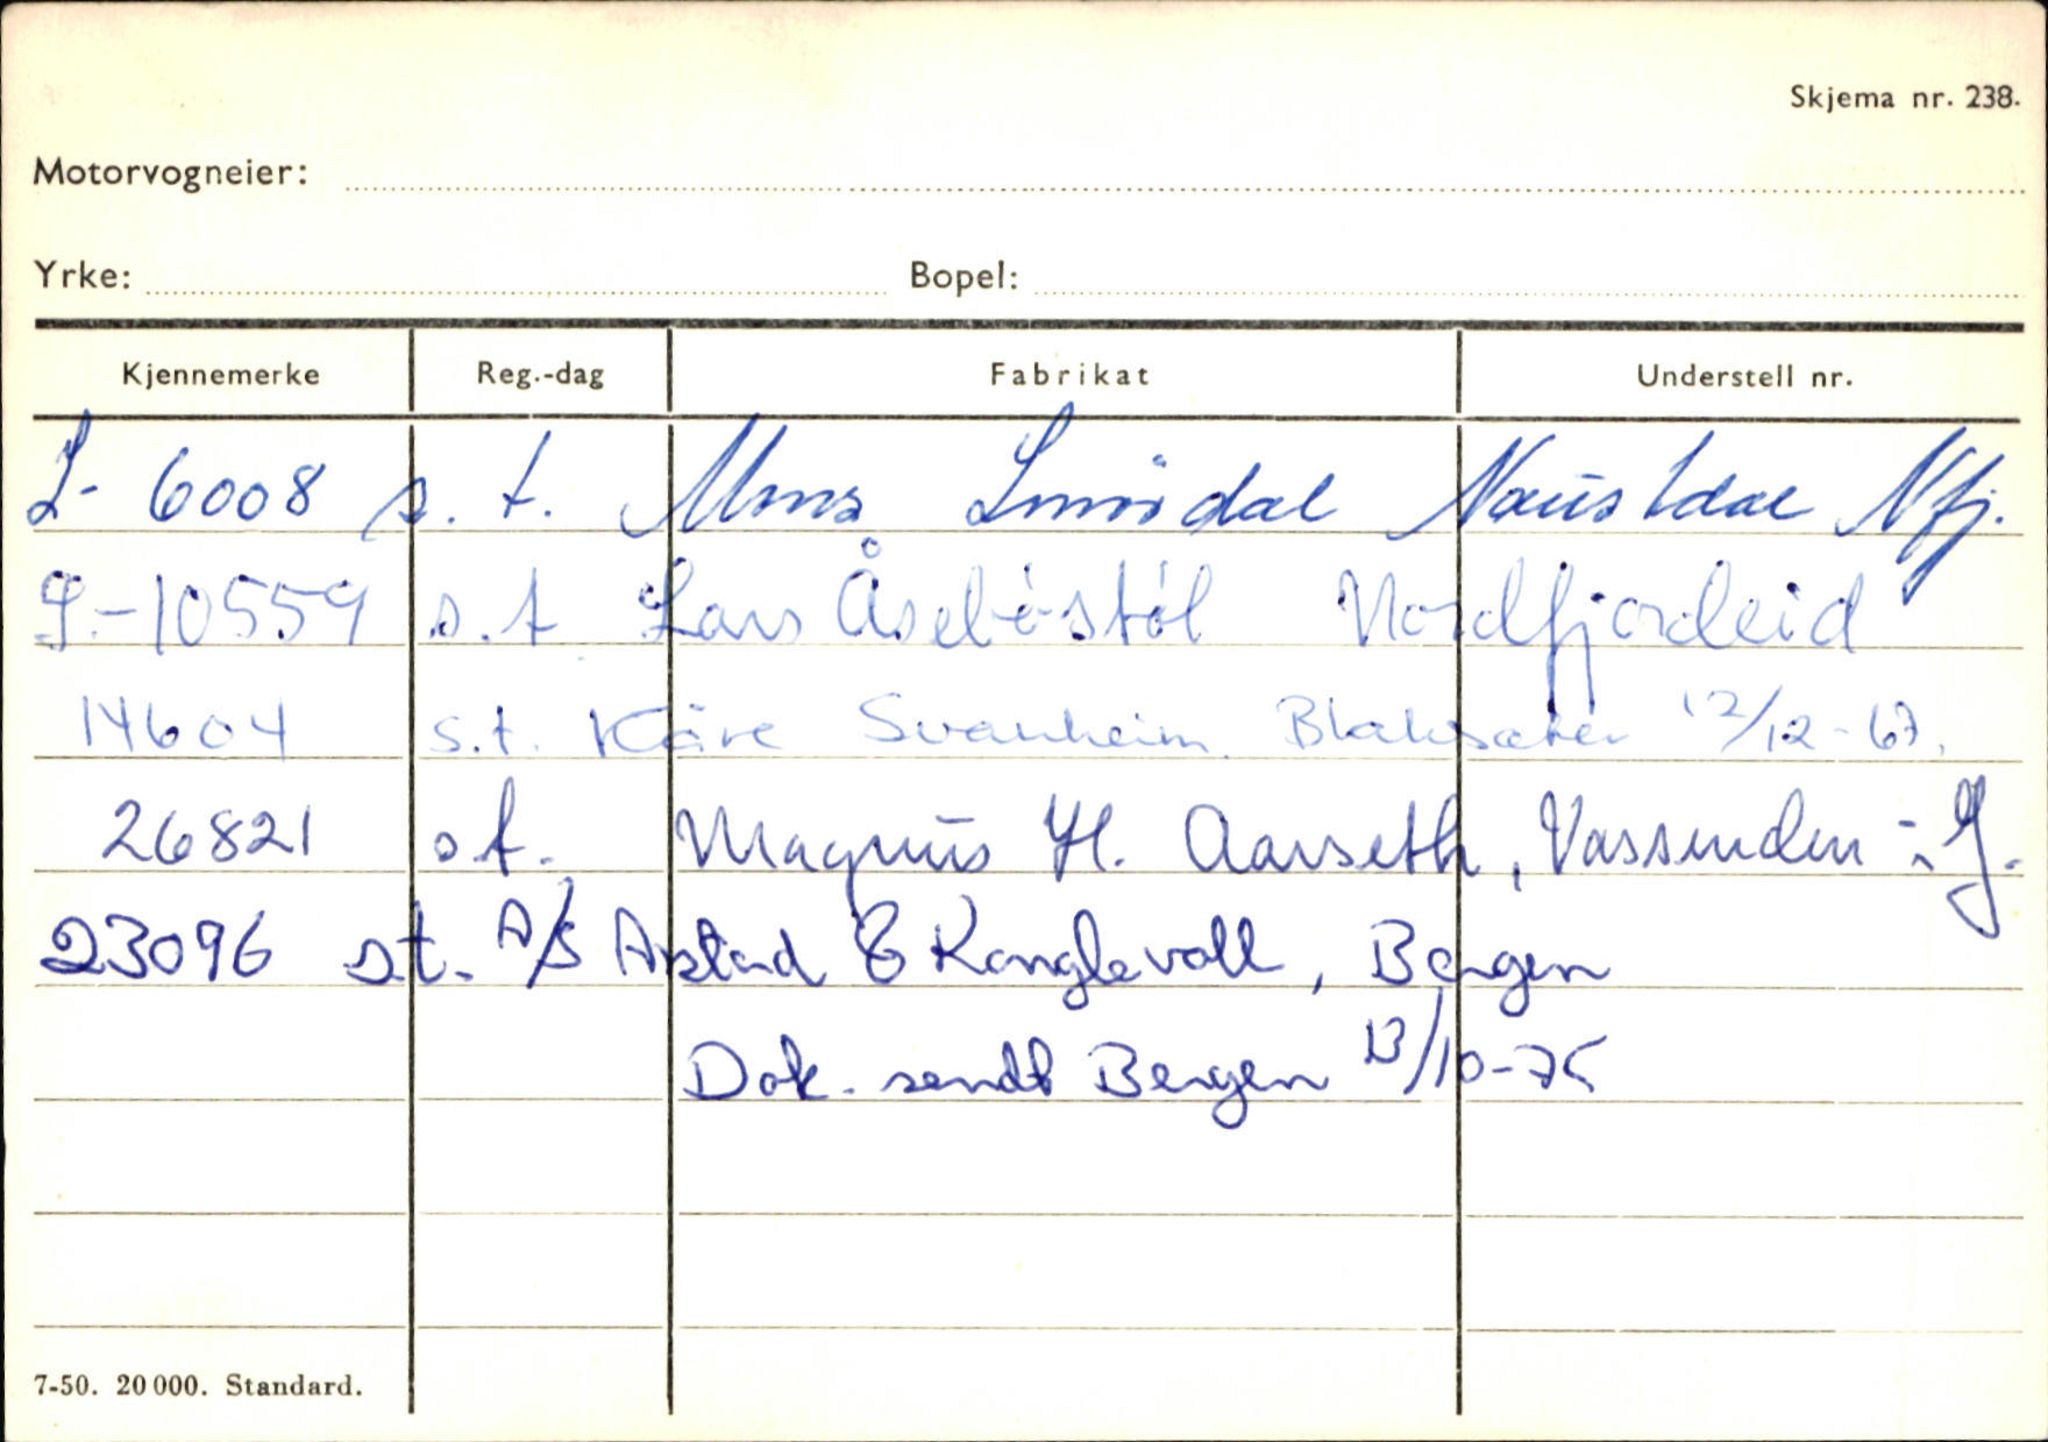 Skjema nr. 238.
Motorvogneier:
Yrke: Bopel:
Kjennemerke Reg.-dag Fabrikat Understell nr.
6008 s.t. Mons Naustdal Nfj.
-10559 s.t Lars Åsebøstøl Nordfjordeid
14604 s.t. Kåre Svanheim Blaksæter 12/12-67.
26821 s.t. Magnus H. Aarseth, Vassenden i J.
23096 s.t. A/S Arstad & Konglevoll, Bergen
Dok. sendt Bergen 13/10-75
7-50. 20 000. Standard.